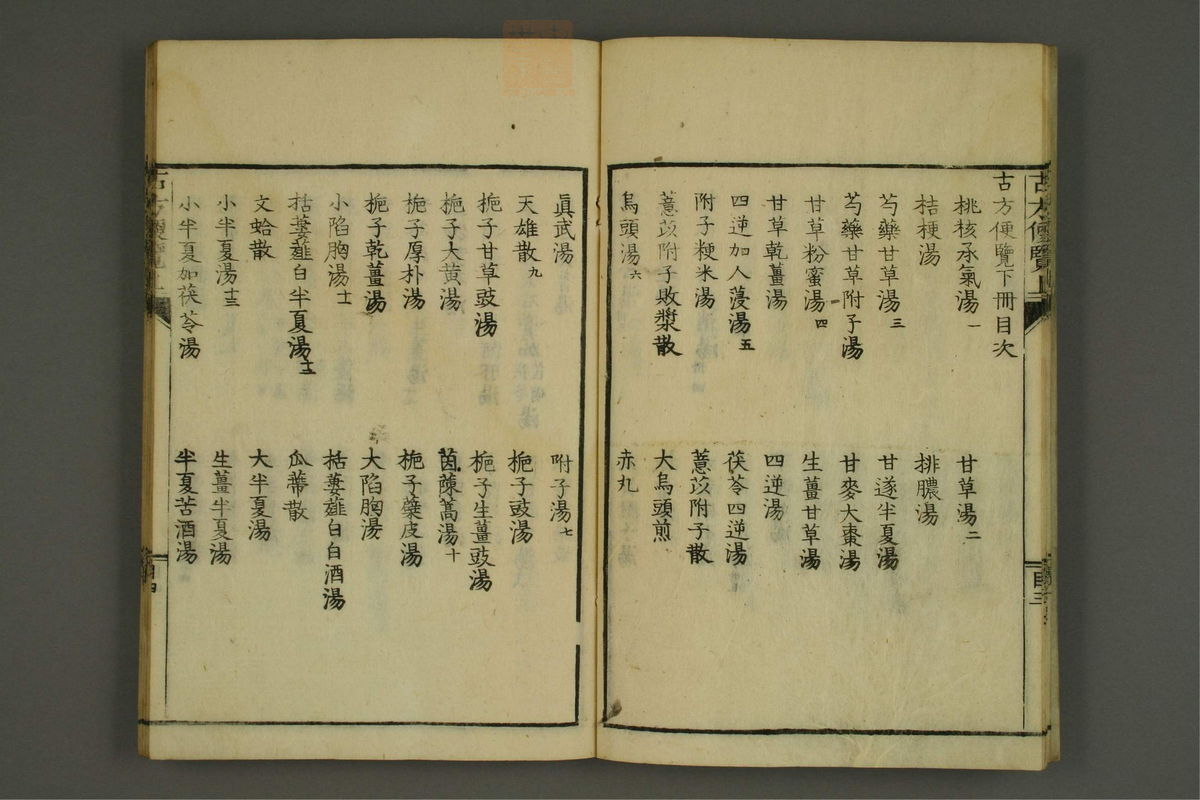 古方便覽下冊目次
桃核承氣湯一 甘草湯二
桔梗湯 排膿湯
芍藥甘草湯三 甘遂半夏湯
芍藥甘草附子湯 甘麥大棗湯
甘草粉蜜湯四 生薑甘草湯
甘草乾薑湯 四逆湯
四逆加人蓡湯五 茯苓四逆湯
附子粳米湯 薏苡附子散
薏苡附子敗漿散 大烏頭煎
烏頭湯六 赤丸
眞武湯 附子湯七
天雄散九 梔子豉湯
梔子甘草豉湯 梔子生薑豉湯
梔子大黄湯 茵蔯蒿湯十
梔子厚朴湯 梔子蘗皮湯
梔子乾薑湯 大陷胸湯
小陷胸湯十一 栝蔞薤白白酒湯
栝蔞薤白半夏湯十二 瓜蔕散
文蛤散 大半夏湯
小半夏湯十三 生薑半夏湯
小半夏加茯苓湯 半夏苦酒湯